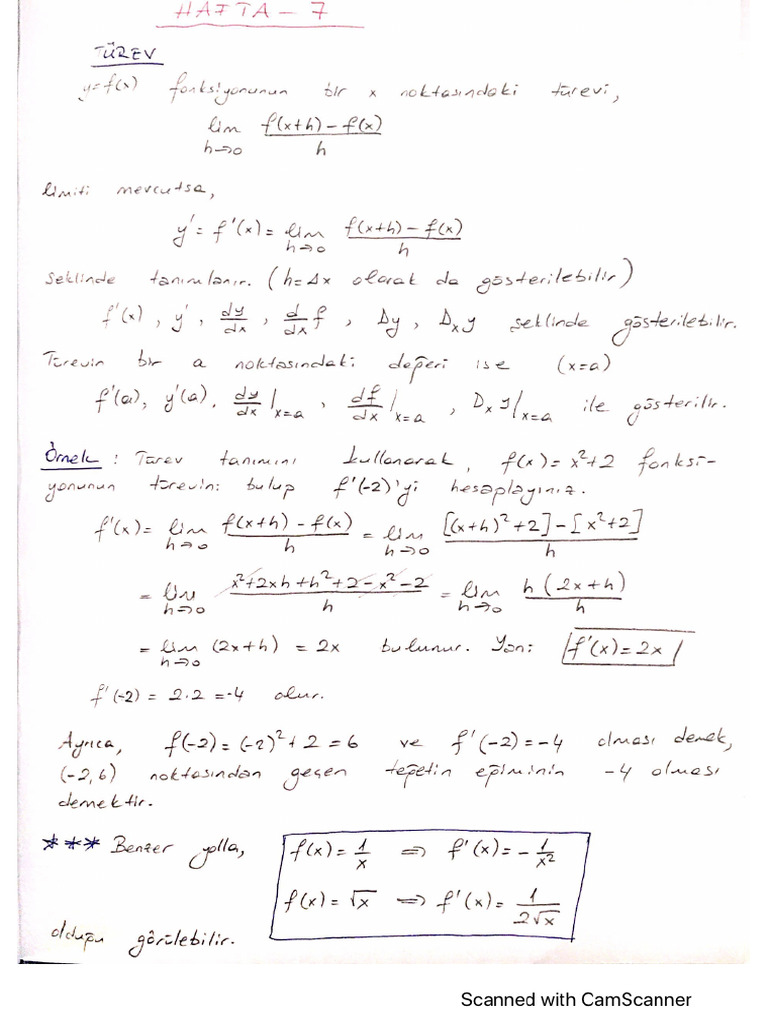 HAFTA - 7
TÜREV
y=f(x) fonksiyonunun bir x noktasındaki türevi,
lim h→0 (f(x+h) - f(x))/h
limiti mevcutsa,
y' = f'(x) = lim h→0 (f(x+h) - f(x))/h
şeklinde tanımlanır. (h=Δx olarak da gösterilebilir)
f'(x), y', dy/dx, d/dx f, Dy, D_x y şeklinde gösterilebilir.
Türevin bir a noktasındaki değeri ise (x=a)
f'(a), y'(a), dy/dx|x=a, df/dx|x=a, D_x y|x=a ile gösterilir.
Örnek: Türev tanımını kullanarak, f(x) = x²+2 fonksi-
yonunun türevini bulup f'(-2)'yi hesaplayınız.
f'(x) = lim h→0 (f(x+h) - f(x))/h = lim h→0 ([(x+h)²+2] - [x²+2])/h
= lim h→0 (x²+2xh+h²+2-x²-2)/h = lim h→0 h(2x+h)/h
= lim h→0 (2x+h) = 2x bulunur. Yani f'(x) = 2x
f'(-2) = 2.2 = -4 olur.
Ayrıca, f(-2) = (-2)²+2 = 6 ve f'(-2) = -4 olması demek,
(-2,6) noktasından geçen teğetin eğiminin -4 olması
demektir.
*** Benzer yolla,
f(x) = 1/x ⇒ f'(x) = -1/x²
f(x) = √x ⇒ f'(x) = 1/(2√x)
olduğu görülebilir.
Scanned with CamScanner